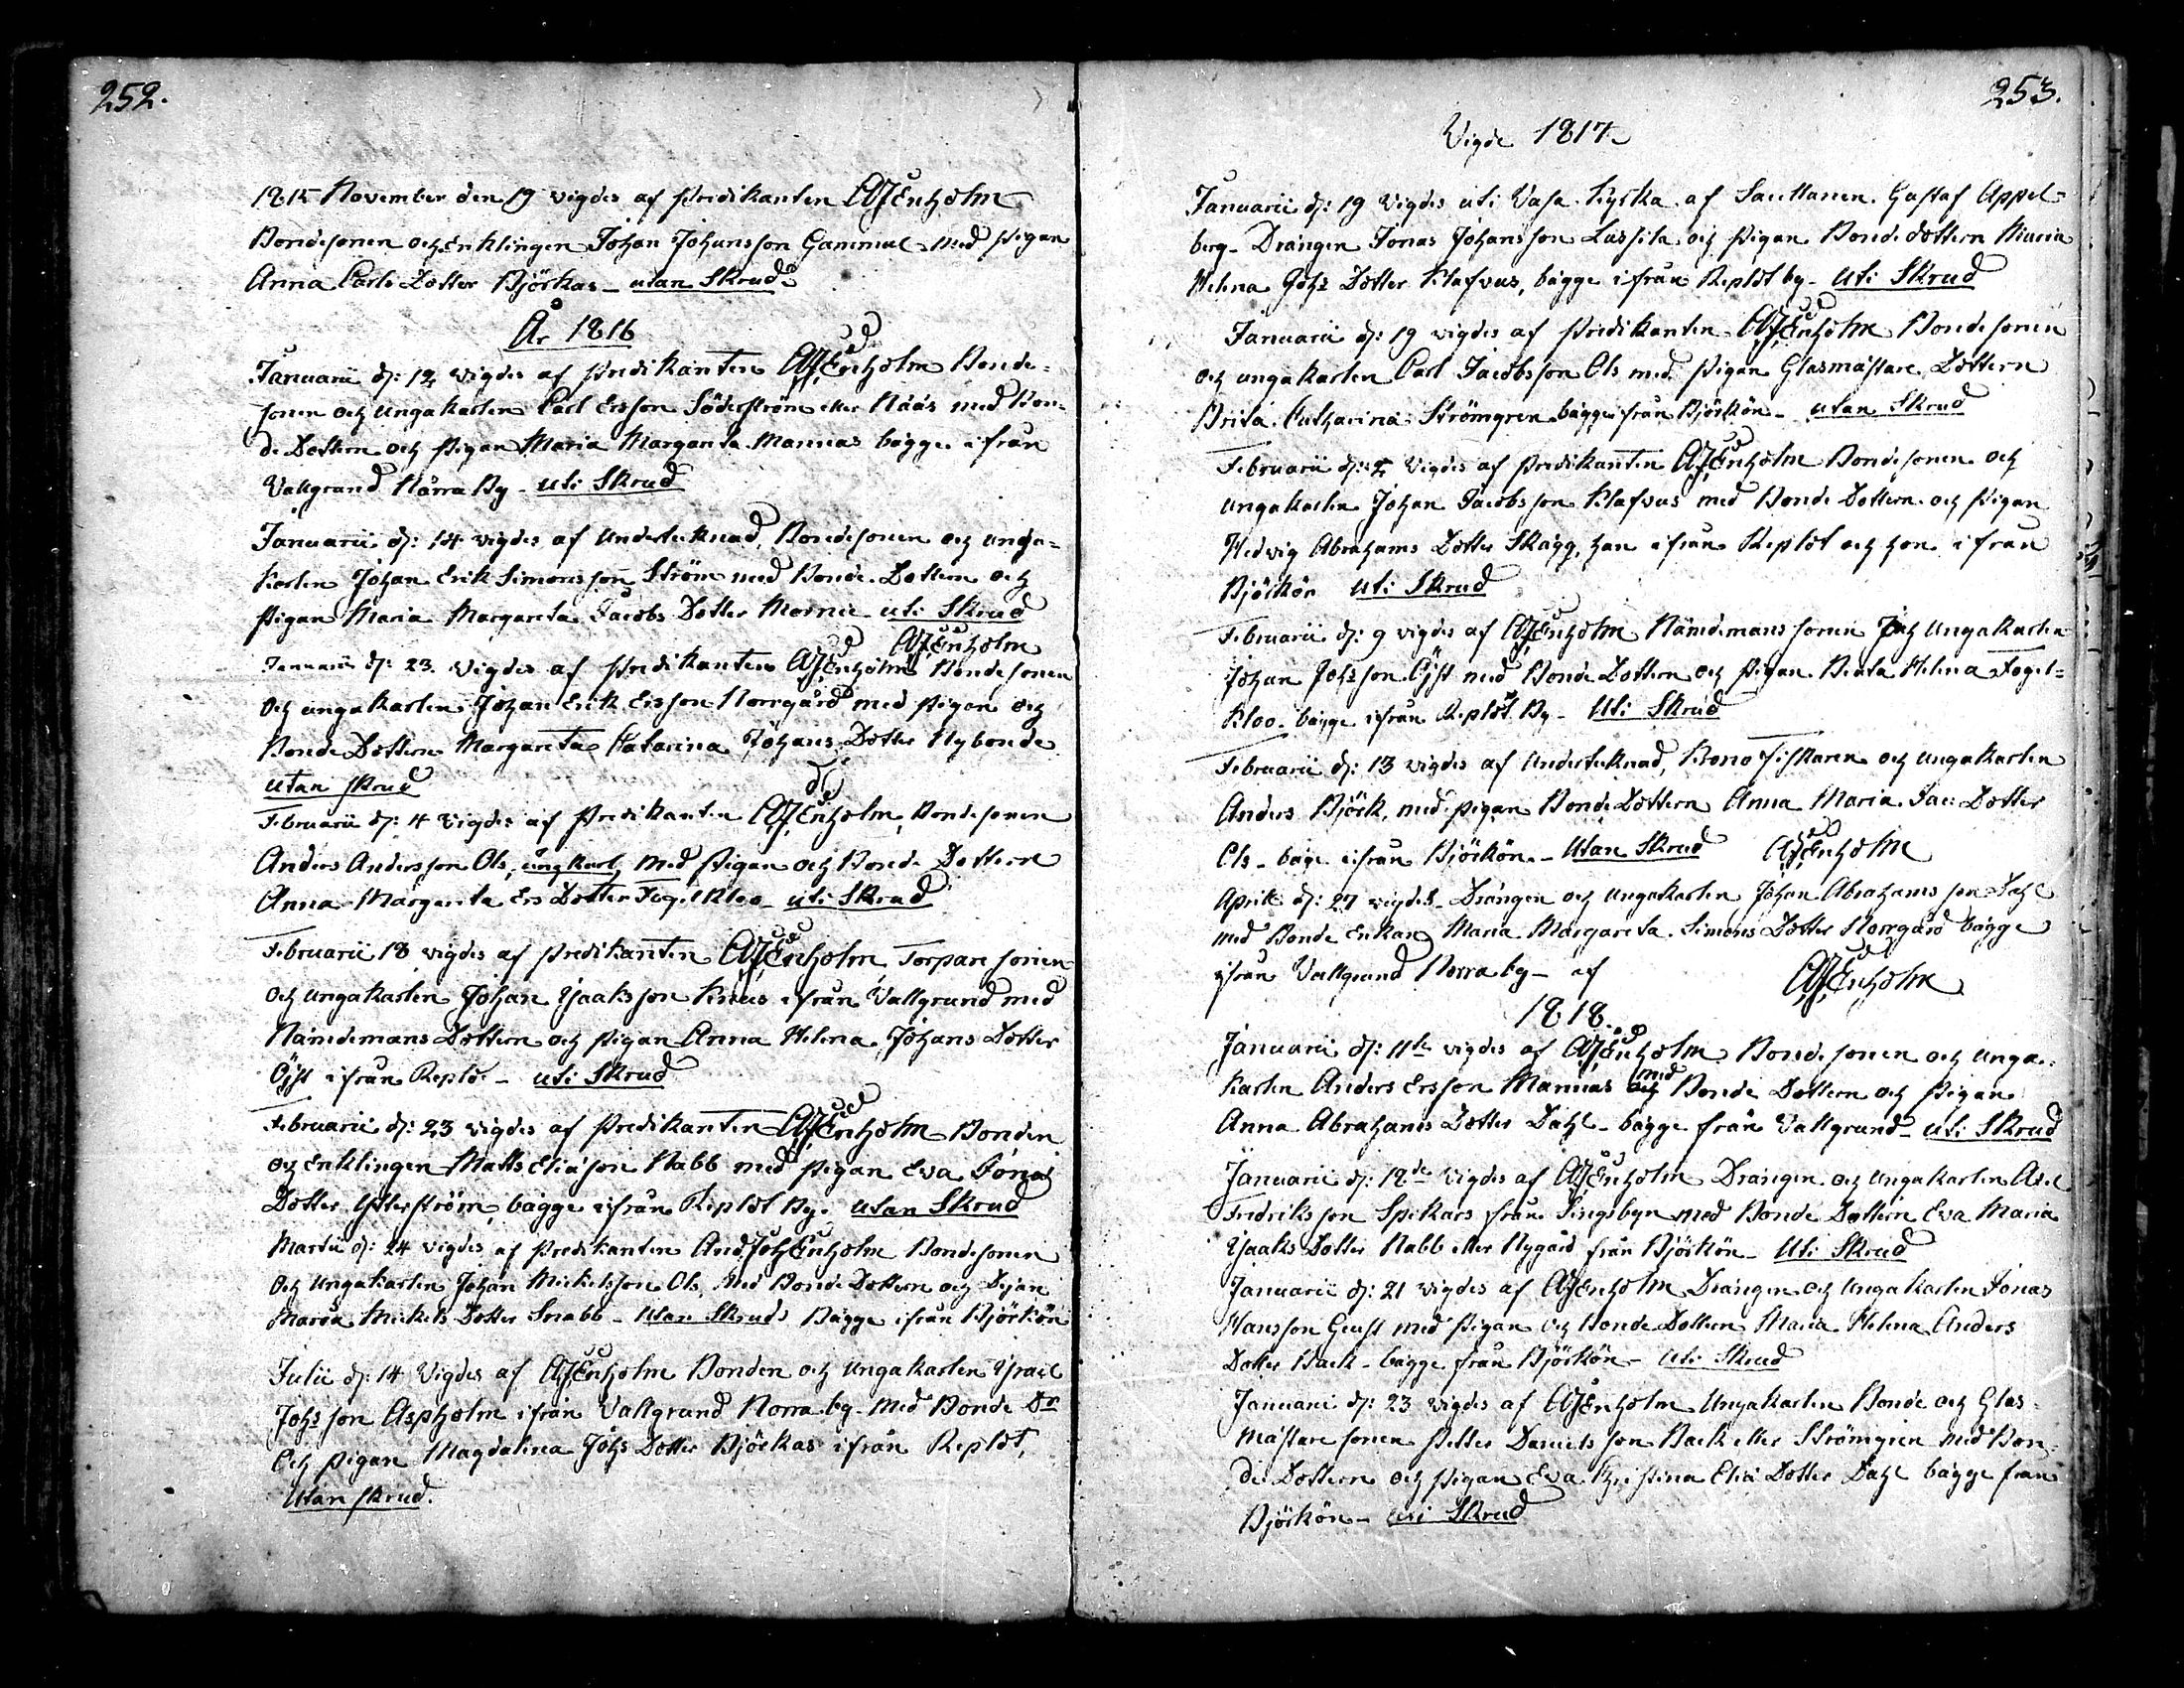 252.
1815 November den 19 vigdes af Predikanten AJEnholm
Bondesonen och Enklingen Johan Johansson Gammul med Pigan
Anna Carls Dotter Björkas – utan Skrud
År 1816
Januarii d: 12 vigdes af Predikanten AJEnholm Bonde-
sonen och ungakarlen Carl Ersson Söderström eller Näås med Bon-
de Dottern och Pigan Maria Margareta Mannas bägge ifrån
Vallgrund Norra By – uti Skrud
Januarii d: 14 vigdes af Undertecknad, Bondesonen och unga-
karlen Johan Erik Simonsson Ström med Bonde Dottern och
Pigan Maria Margareta Jacobs Dotter uti Skrud
AJEnholm
Januarii d: 23 vigdes af Predikanten AJEnholm Bondesonen
och ungakarlen Johan Erik Ersson Norrgård med Pigan och
Bonde Dottern Margareta Katarina Johans Dotter Nybonde
utan skrud
Februarii d: 4 vigdes af Predikanten AJEnholm, Bondesonen
Anders Andersson Ols, ungkarl, med Pigan och Bonde Dottern
Anna Margareta Ers Dotter Fogelkloo – uti Skrud
Februarii 18 vigdes af Predikanten AJEnholm Torpare sonen
och ungakarlen Johan Ysaaksson Knus ifrån Vallgrund med
Nämdemans Dottern och Pigan Anna Helena Johans Dotter
Öjst ifrån Replo – uti Skrud
Februarii d: 23 vigdes af Predikanten AJEnholm Bonden
och Enklingen Matts Eliäson Nabb med Pigan Eva Jonas
Dotter Ytterström, bägge ifrån Replot By. utan Skrud
Martii d: 24 vigdes af Predikanten And: Joh: Enholm Bondesonen
och Ungakarlen Johan Mickelsson Ols, med Bonde Dottern och Pijan
Maria Mickels Dotter Snabb – Utan Skrud Bägge ifrån Björkön
Julii d: 14 Vigdes af AJEnholm Bonden och Ungakarlen Ysrael
Johsson Aspholm ifrån Vallgrund Norra by – med Bonde Dr
Och Pigan Magdalena Johs Dotter Björkas ifrån Replot,
Utan skrud.
253.
Vigde 1817
Januarii d: 19 Vigdes uti Vasa Kyrka af Gustaf Appel-
berg – Drängen Jonas Johansson Lassila och Pigan Bonde dottern Maria
Helena Johs Dotter Klafvus, bägge ifrån Replot by – Uti Skrud
Januarii d: 19 vigdes af Predikanten AJEnholm Bonde sonen
och ungakarlen Carl Jacobsson Ols med Pigan Glasmästare Dottern
Brita Catharina Strömgren bägge från Björkön – utan Skrud
Februarii d: 2 Vigdes af Predikanten AJEnholm Bondesonen och
ungakarlen Johan Jacobsson Klafvus med Bonde Dottern och Pigan
Hedvig Abrahams Dotter Skägg, han ifrån Replot och hon ifrån
Björkön uti Skrud
Februarii d: 9 vigdes af AJEnholm Nämdemans sonen och Ungakarlen
Johan Johsson Öjst med Bonde Dottern och Pigan Beata Helena Fogel-
kloo – bägge ifrån Replot By – Uti Skrud
Februarii d: 13 vigdes af Undertecknad, Krono Fiskaren och ungakarlen
Anders Björk, med Pigan Bonde Dottern Anna Maria Jac: Dotter
Ols – bäge ifrån Björkön – Utan Skrud AJEnholm
Aprili d: 27 vigdes – Drängen och ungakarlen Johan Abrahamsson Dahl
med Bonde Enkan Maria Margareta Simons Dotter Norrgård bägge
ifrån Vallgrund Norra by – af AJEnholm
1818.
Januarii d: 11te vigdes af AJEnholm Bondesonen och unga-
karlen Anders Ersson Mannas med Bonde Dottern och Pigan
Anna Abrahams Dotter Dahl – bägge från Vallgrund – uti Skrud
Januarii d: 18de vigdes af AJEnholm Drängen och Ungakarlen Axel
Fredriksson Spikars från Singsbyn med Bonde Dottern Eva Maria
Ysaaks Dotter Nabb eller Nygård från Björkön – Uti Skrud
Januarii d: 21 vigdes af AJEnholm Drängen och Ungakarlen Jonas
Hansson Geust med Pigan och Bonde Dottern Maria Helena Anders
Dotter Back – bägge från Björkön – Uti Skrud
Januarii d: 23 vigdes af AJEnholm Ungakarlen Bonde och Glas-
mästare sonen Petter Danielsson Back eller Strömgren med Bon-
de Dottern och Pigan Eva Kristina Eliä Dotter Dahl bägge från
Björkön – uti Skrud